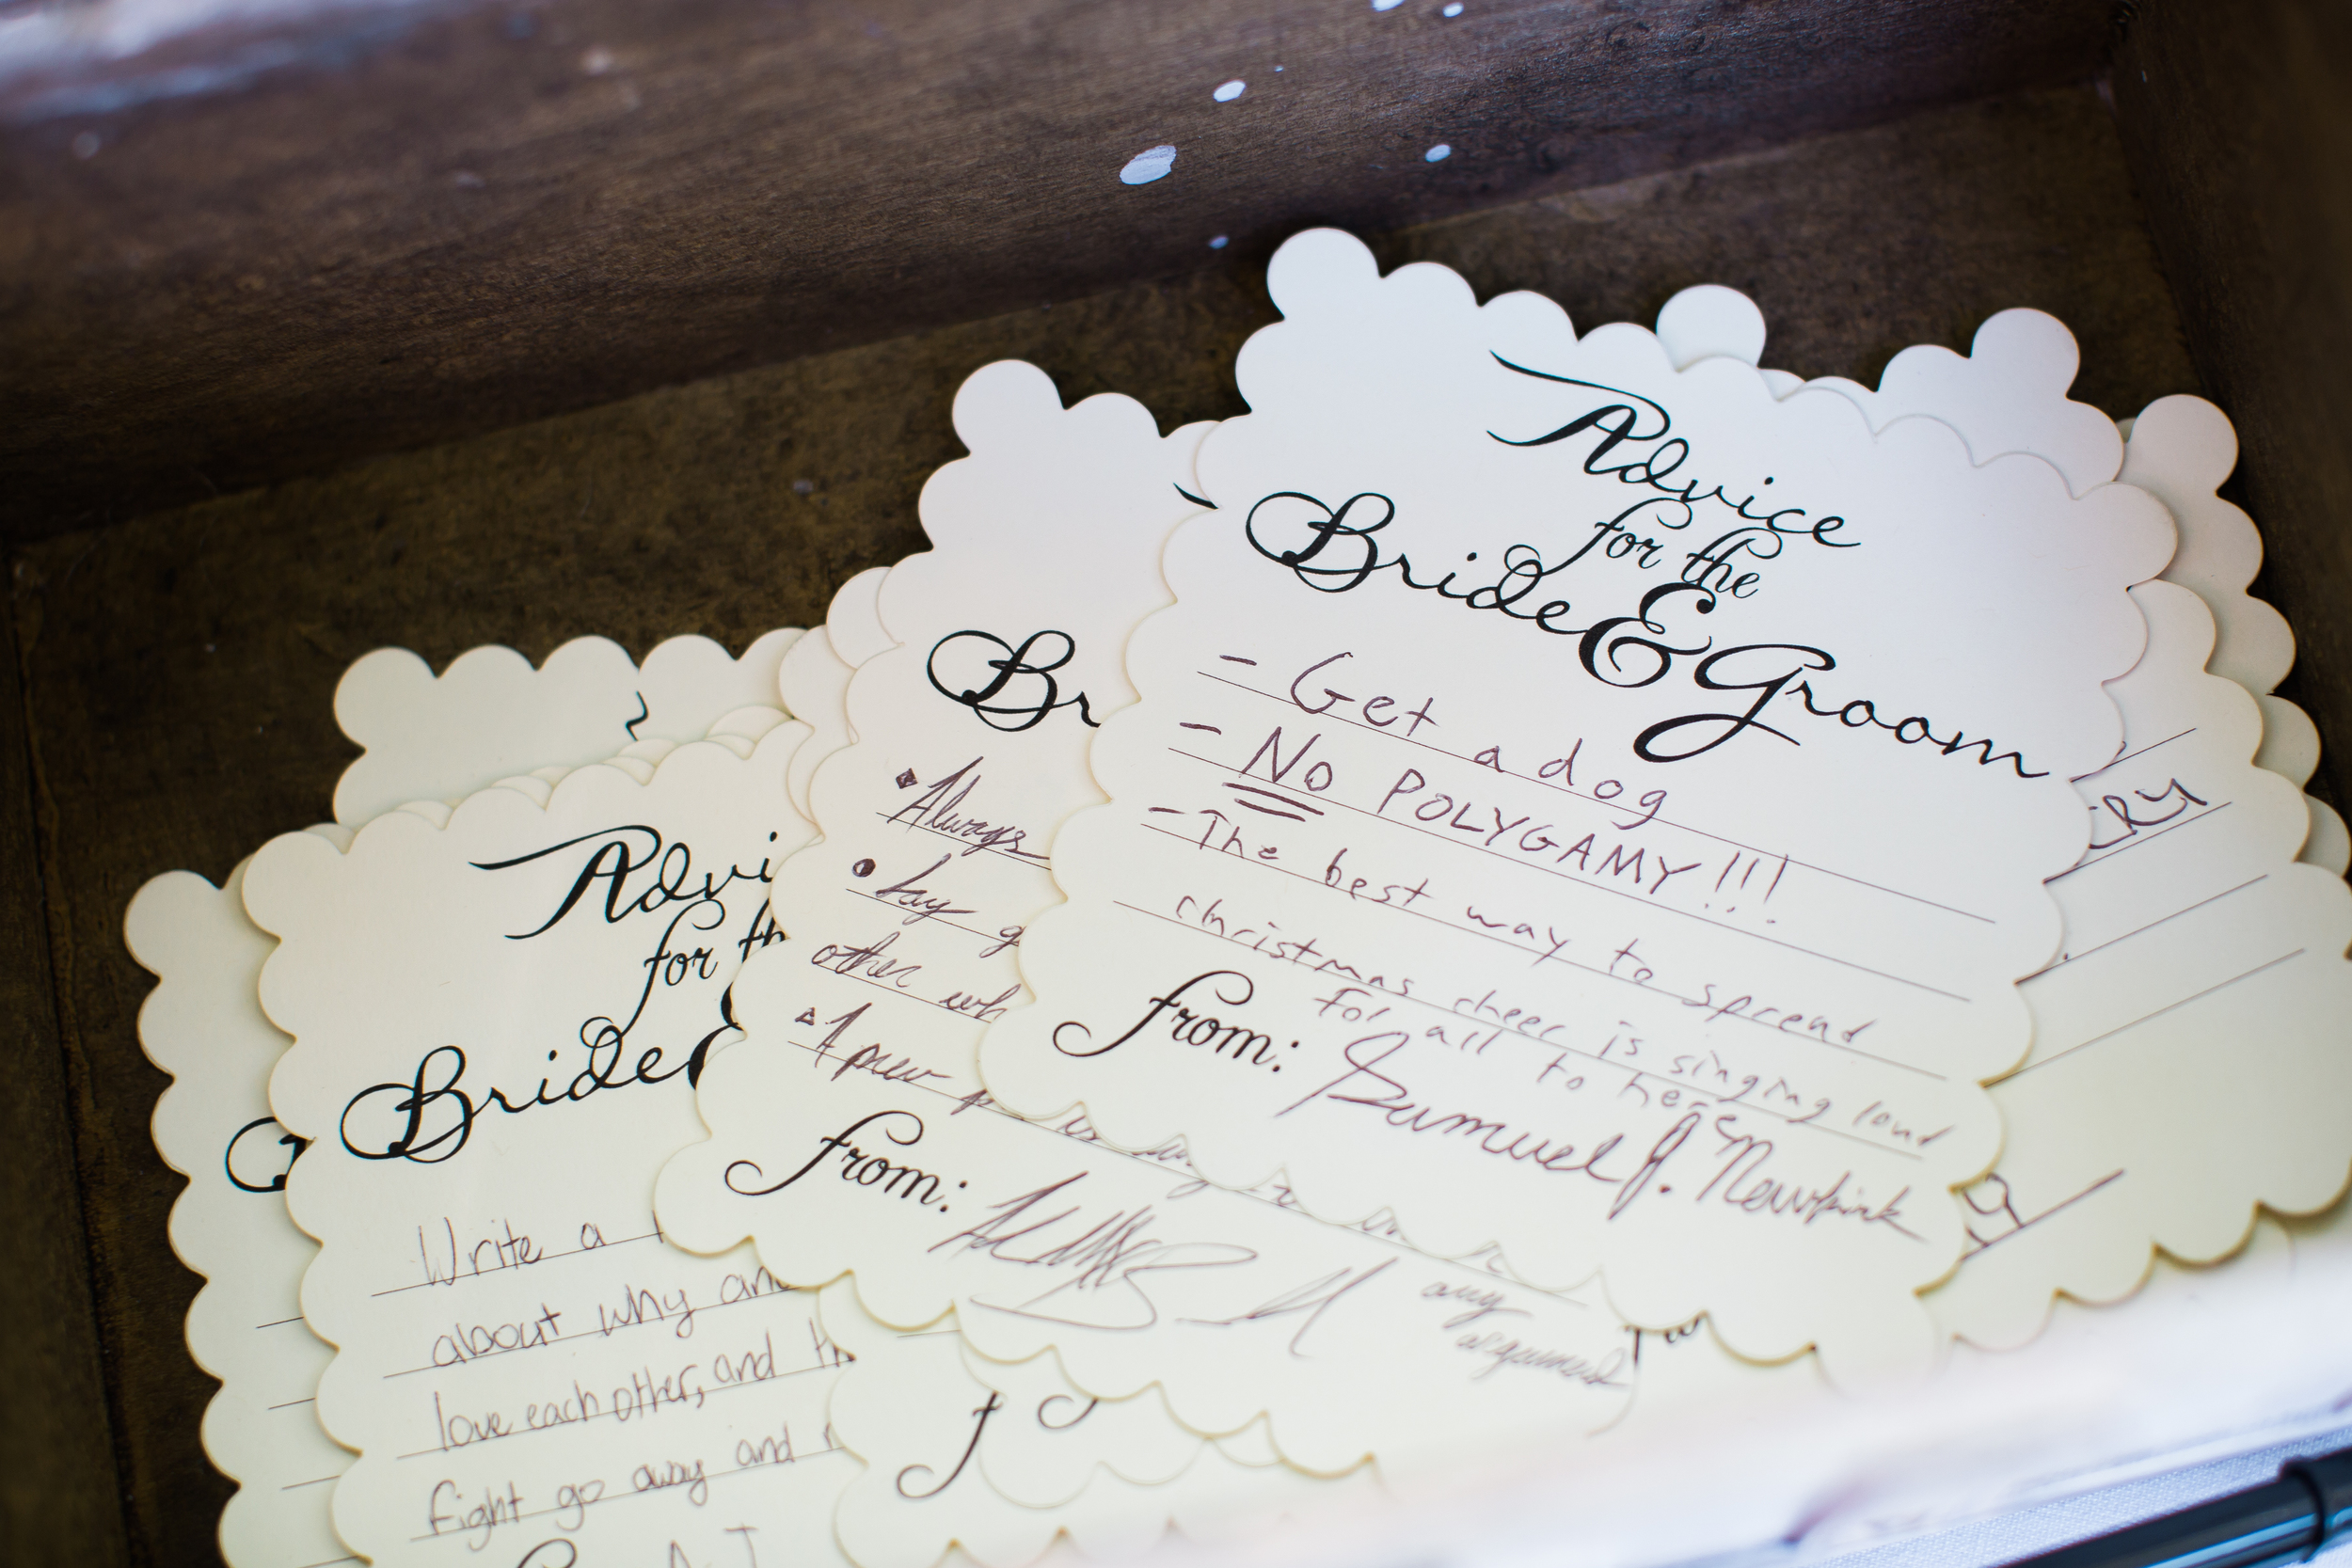 Advice
for the
Bride & Groom
- Get a dog
- No POLYGAMY!!!
- The best way to spread
christmas cheer is singing loud
For all to here
from: Samuel J. Newkirk
Br
• Always
• Lay
other wh
from:
any
argument
Advi
for th
Bride
Write a
about why and
love each other, and th
fight go away and
RY